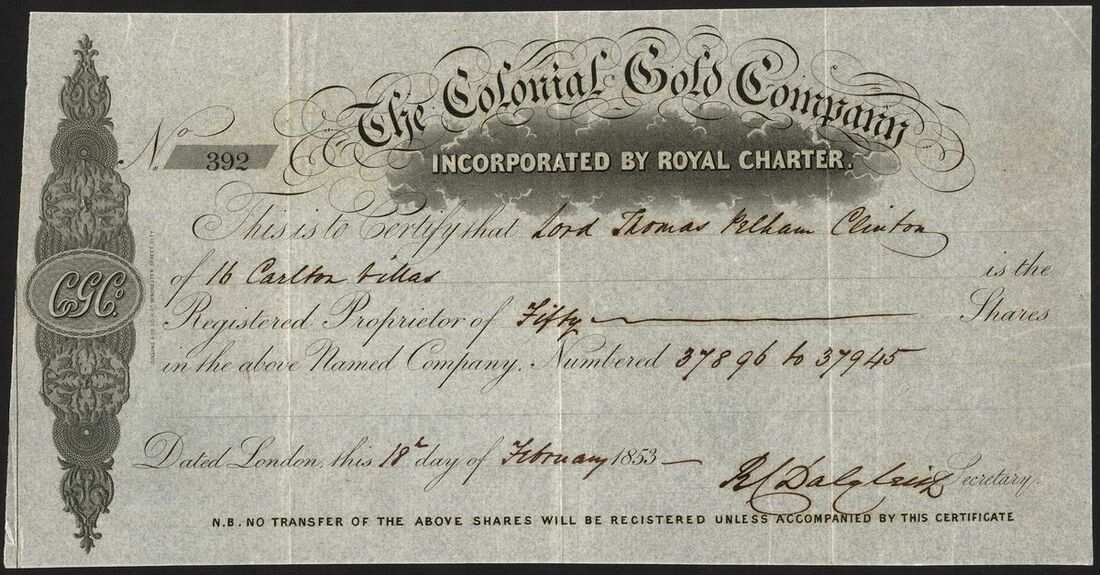 The Colonial Gold Company
INCORPORATED BY ROYAL CHARTER.
No 392
This is to Certify that Lord Thomas Pelham Clinton
of 16 Carlton Villas is the
Registered Proprietor of Fifty Shares
in the above Named Company, Numbered 37896 to 37945
Dated London, this 18th day of February 1853
Secretary.
N.B. NO TRANSFER OF THE ABOVE SHARES WILL BE REGISTERED UNLESS ACCOMPANIED BY THIS CERTIFICATE
CGCo.